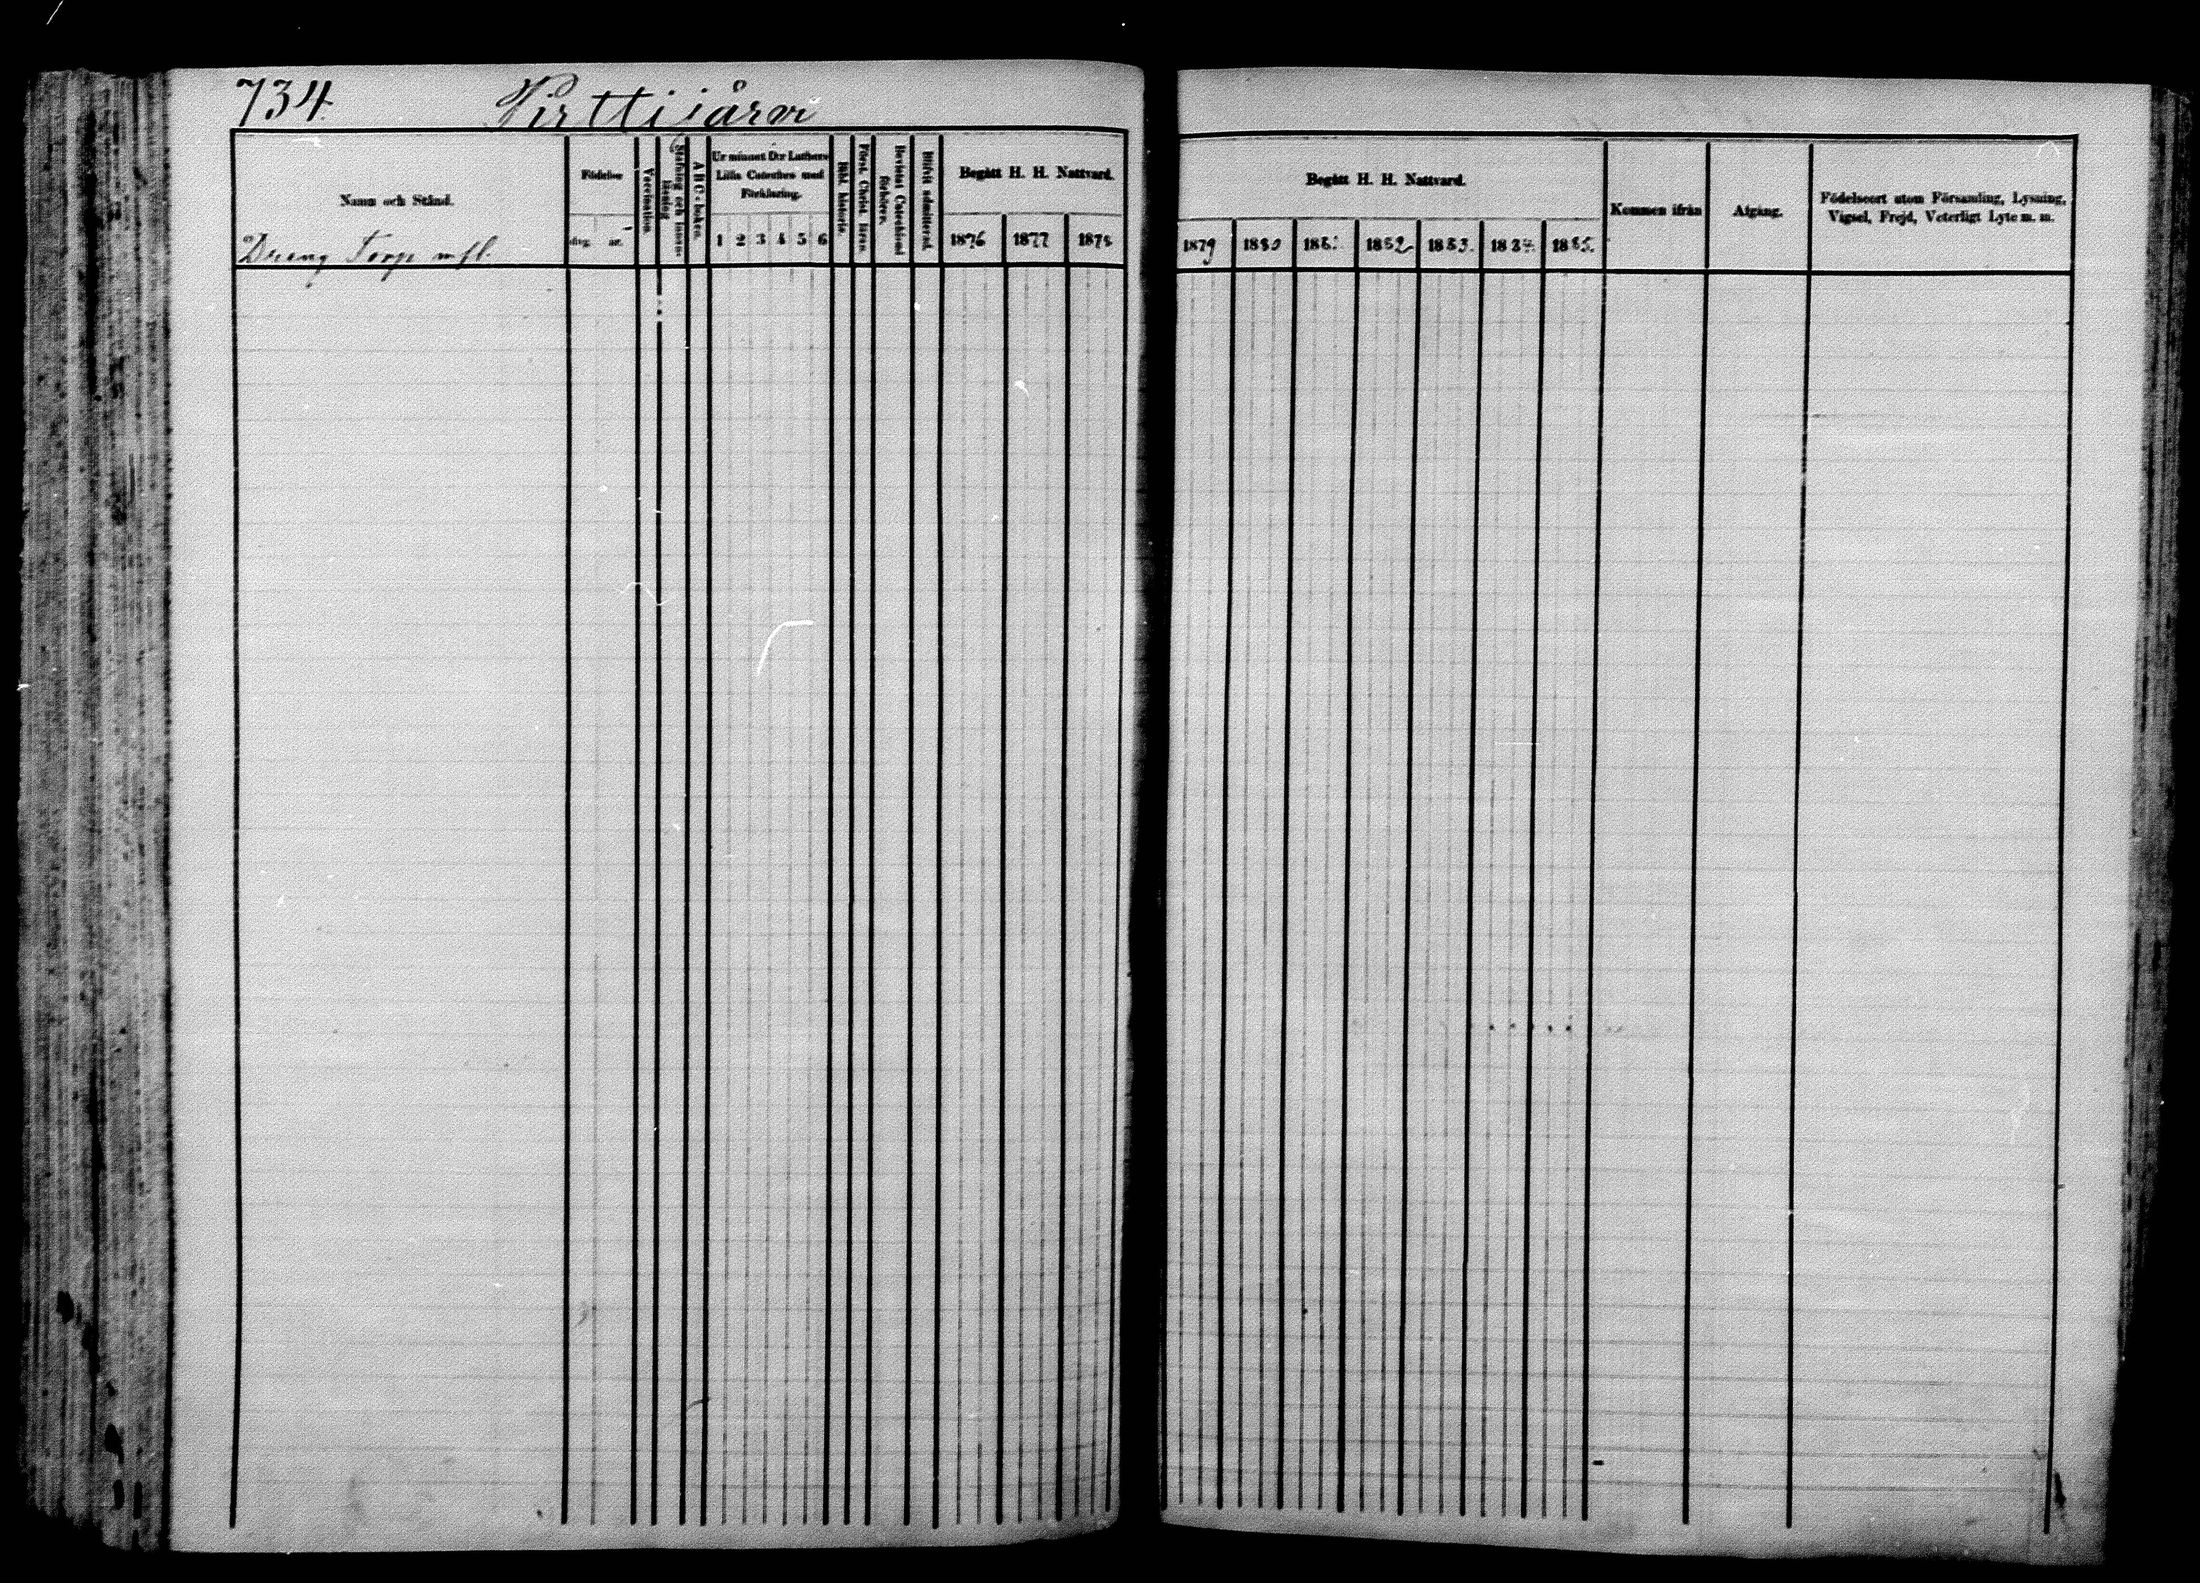 734 Virttijärvi
Namn och Stånd.
Dräng Torp mfl.
Födelse
dag. år.
Vaccination.
Stafning och innan-läsning
A B C-boken.
Ur minnet D:r Luthers
Lilla Cateches med
Förklaring.
1 2 3 4 5 6
Bibl. historie.
Först. Christ. läran.
Bevistat Catechismi förhören.
Blifvit admitterad.
Begått H. H. Nattvard.
1876 1877 1878
Begått H. H. Nattvard.
1879 1880 1881 1882 1883. 1884. 1885.
Kommen ifrån
Afgång.
Födelseort utom Församling, Lysning,
Vigsel, Frejd, Veterligt Lyte m. m.